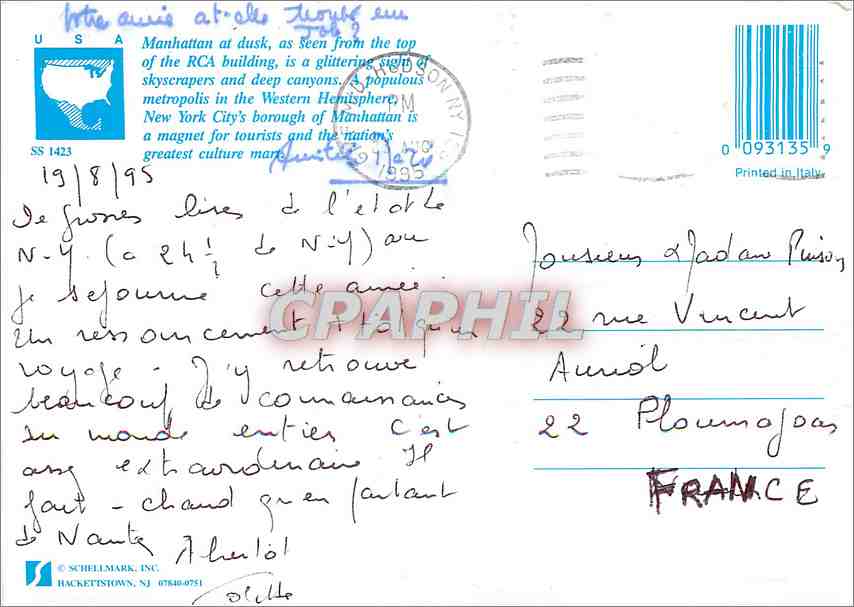 Votre amie a t-elle trouvé un
Job ?
USA
Manhattan at dusk, as seen from the top
of the RCA building, is a glittering sight of
skyscrapers and deep canyons. A populous
metropolis in the Western Hemisphere,
New York City's borough of Manhattan is
a magnet for tourists and the nation's
greatest culture mart.
SS 1423
HUDSON NY
PM
AUG
1995
0 093135 9
Printed in Italy
19/8/95
De grosses bises de l'etat de
N-Y. (a 2h ½ de N-Y) ou
je sejourne cette année.
Un ressourcement +
voyage - J'y retrouve
beaucoup de connaissances
du monde entier c'est
assez extraordinaire Il
fait - chaud qu'en partant
de Nantes A bientôt
Colette
Monsieur & Madame Pinson
22 rue Vincent
Auriol
22 Ploumagoar
FRANCE
CPAPHIL
© SCHELLMARK, INC.
HACKETTSTOWN, NJ 07840-0751